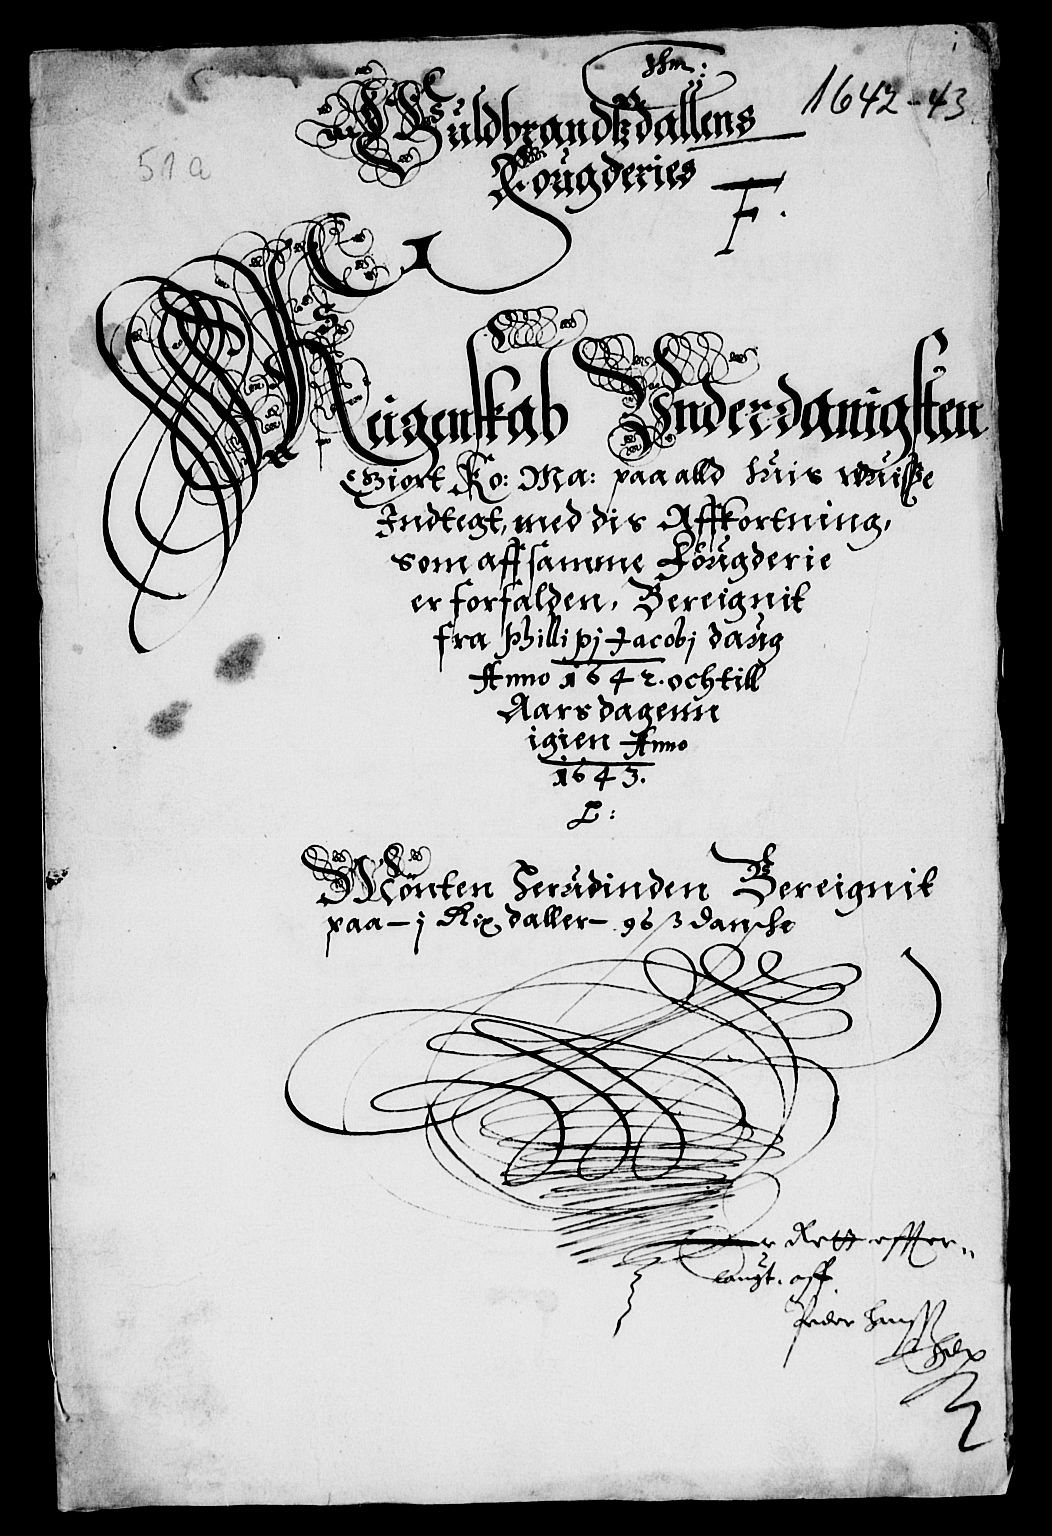 1642-43
51a
Guldbrandtzdallens
Fougderies
F.
Reigenskab Underdanigsten
Giort Ko: Ma: paa alld huis wuisse
Indtegt, med dis Affkortning,
som aff samme Fougderie
er forfalden, Bereignit
fra Philipj Jacobj daug
Anno 1642. och till
Aarsdagenn
igien Anno
1643.
L:
Mönten herudinden Bereignit
paa - j Rix daller - 96 ß danske
er Rett effter
laugt. aff
Peder